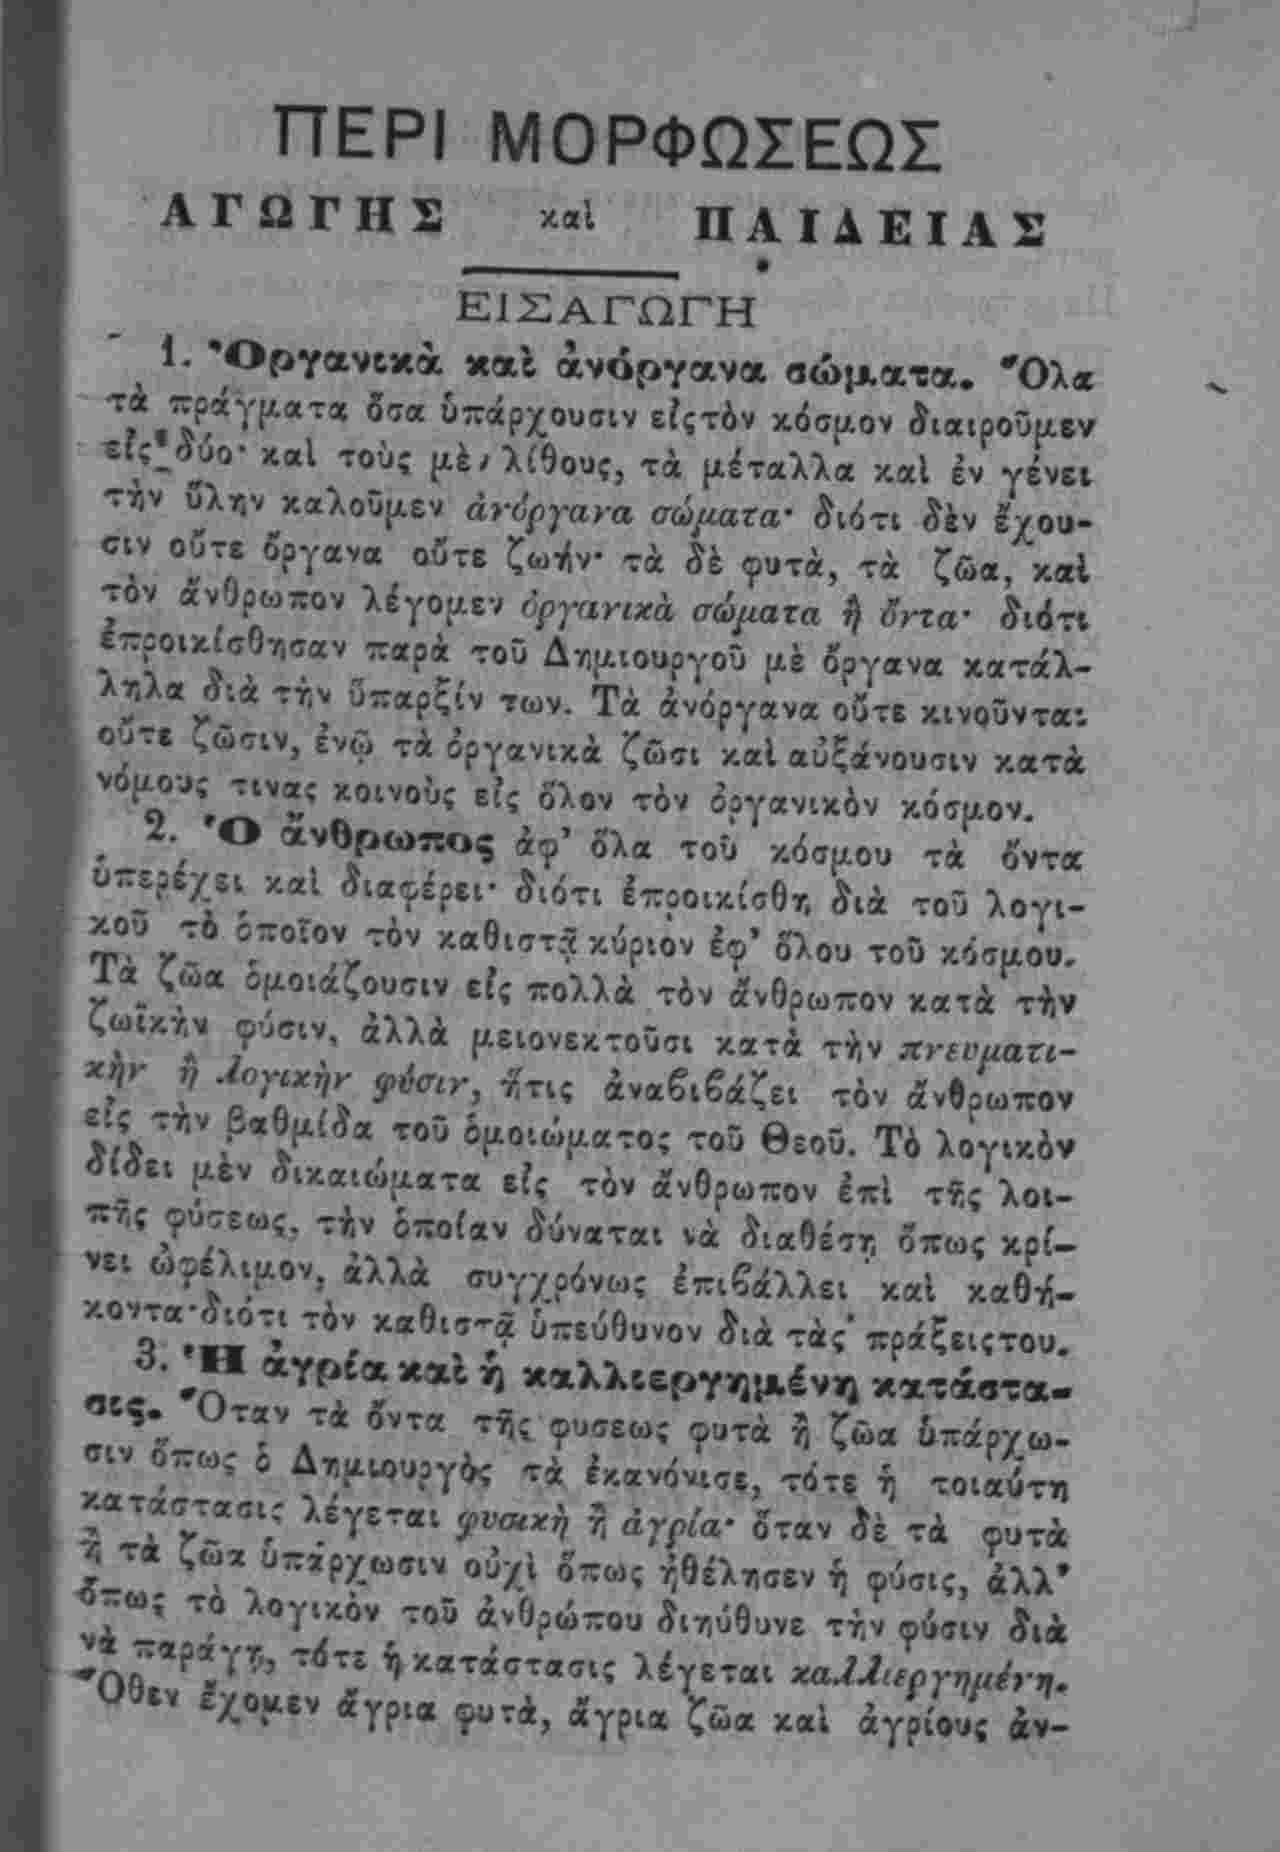 ΠΕΡΙ ΜΟΡΦΩΣΕΩΣ
ΑΓΩΓΗΣ καὶ ΠΑΙΔΕΙΑΣ
ΕΙΣΑΓΩΓΗ
1. Ὀργανικὰ καὶ ἀνόργανα σώματα. Ὅλα
τὰ πράγματα ὅσα ὑπάρχουσιν εἰς τὸν κόσμον διαιροῦμεν
εἰς δύο· καὶ τοὺς μὲν λίθους, τὰ μέταλλα καὶ ἐν γένει
τὴν ὕλην καλοῦμεν ἀνόργανα σώματα· διότι δὲν ἔχου-
σιν οὔτε ὄργανα οὔτε ζωήν· τὰ δὲ φυτὰ, τὰ ζῶα, καὶ
τὸν ἄνθρωπον λέγομεν ὀργανικὰ σώματα ἢ ὄντα· διότι
ἐπροικίσθησαν παρὰ τοῦ Δημιουργοῦ μὲ ὄργανα κατάλ-
ληλα διὰ τὴν ὕπαρξίν των. Τὰ ἀνόργανα οὔτε κινοῦνται
οὔτε ζῶσιν, ἐνῷ τὰ ὀργανικὰ ζῶσι καὶ αὐξάνουσιν κατὰ
νόμους τινας κοινοὺς εἰς ὅλον τὸν ὀργανικὸν κόσμον.
2. Ὁ ἄνθρωπος ἀφ’ ὅλα τοῦ κόσμου τὰ ὄντα
ὑπερέχει καὶ διαφέρει· διότι ἐπροικίσθη διὰ τοῦ λογι-
κοῦ τὸ ὁποῖον τὸν καθιστᾷ κύριον ἐφ’ ὅλου τοῦ κόσμου.
Τὰ ζῶα ὁμοιάζουσιν εἰς πολλὰ τὸν ἄνθρωπον κατὰ τὴν
ζωϊκὴν φύσιν, ἀλλὰ μειονεκτοῦσι κατὰ τὴν πνευματι-
κὴν ἢ λογικὴν φύσιν, ἥτις ἀναβιβάζει τὸν ἄνθρωπον
εἰς τὴν βαθμίδα τοῦ ὁμοιώματος τοῦ Θεοῦ. Τὸ λογικὸν
δίδει μὲν δικαιώματα εἰς τὸν ἄνθρωπον ἐπὶ τῆς λοι-
πῆς φύσεως, τὴν ὁποίαν δύναται νὰ διαθέσῃ ὅπως κρί-
νει ὠφέλιμον, ἀλλὰ συγχρόνως ἐπιβάλλει καὶ καθή-
κοντα· διότι τὸν καθιστᾷ ὑπεύθυνον διὰ τὰς πράξεις του.
3. Ἡ ἀγρία καὶ ἡ καλλιεργημένη κατάστα-
σις. Ὅταν τὰ ὄντα τῆς φυσεως φυτὰ ἢ ζῶα ὑπάρχω-
σιν ὅπως ὁ Δημιουργὸς τὰ ἐκανόνισε, τότε ἡ τοιαύτη
κατάστασις λέγεται φυσικὴ ἢ ἀγρία· ὅταν δὲ τὰ φυτὰ
ἢ τὰ ζῶα ὑπάρχωσιν οὐχὶ ὅπως ἠθέλησεν ἡ φύσις, ἀλλ’
ὅπως τὸ λογικὸν τοῦ ἀνθρώπου διηύθυνε τὴν φύσιν διὰ
νὰ παράγῃ, τότε ἡ κατάστασις λέγεται καλλιεργημένη.
Ὅθεν ἔχομεν ἄγρια φυτὰ, ἄγρια ζῶα καὶ ἀγρίους ἀν-